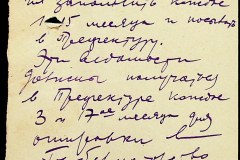 их заполнить каждое
1 15 месяца и посылать
в Префектуру.
Эти ведомости
должны получаться
в Префектуре каждое
3 и 17ое месяца для
отправки в